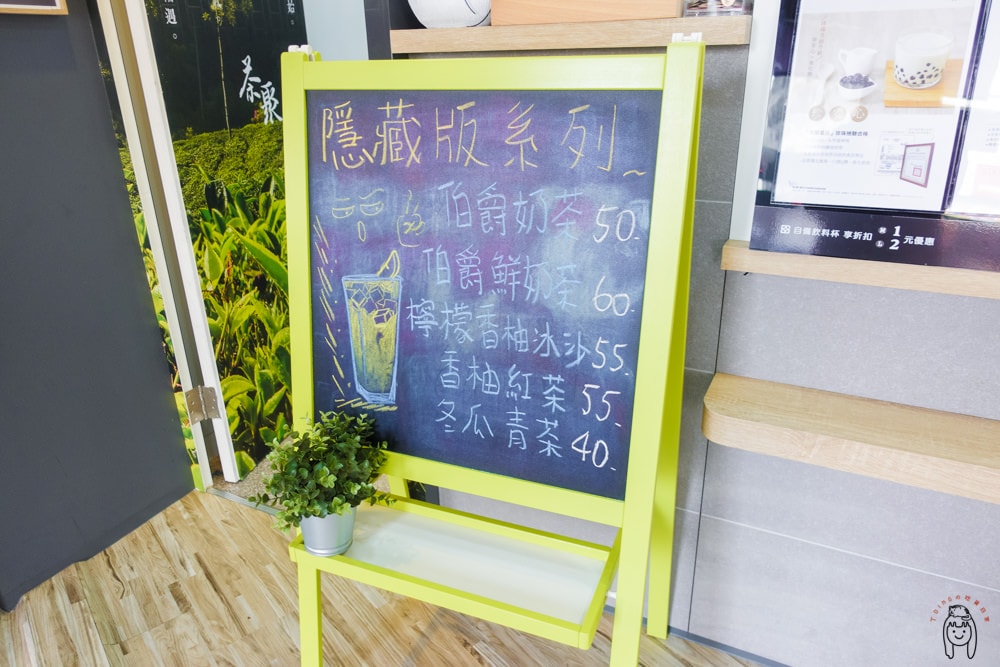 隱藏版系列~
伯爵奶茶 50.
伯爵鮮奶茶 60.
檸檬香柚冰沙 55.
香柚紅茶 55.
冬瓜青茶 40.
茶聚
自備飲料杯 享折扣 M 1 L 2 元優惠